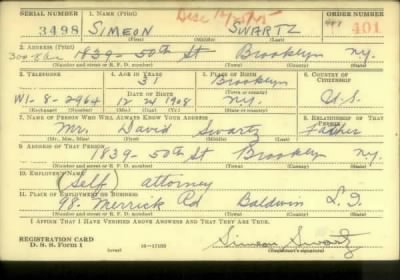 SERIAL NUMBER 1. NAME (Print) ORDER NUMBER
3498 SIMEON SWARTZ 401
(First) (Middle) (Last)
2. ADDRESS (Print)
1839-50th St Brooklyn N.Y.
(Number and street or R. F. D. number) (Town) (County) (State)
3. TELEPHONE 4. AGE IN YEARS 5. PLACE OF BIRTH 6. COUNTRY OF CITIZENSHIP
31 Brooklyn
DATE OF BIRTH (Town or county)
WI-8-2964 12 24 1908 N.Y. U.S.
(Exchange) (No.) (Mo.) (Day) (Yr.) (State or country)
7. NAME OF PERSON WHO WILL ALWAYS KNOW YOUR ADDRESS 8. RELATIONSHIP OF THAT PERSON
Mr. David Swartz Father
(Mr., Mrs., Miss) (First) (Middle) (Last)
9. ADDRESS OF THAT PERSON
1839-50th St Brooklyn N.Y.
(Number and street or R. F. D. number) (Town) (County) (State)
10. EMPLOYER'S NAME
(Self) attorney
11. PLACE OF EMPLOYMENT OR BUSINESS
98- Merrick Rd Baldwin L.I.
(Number and street or R. F. D. number) (Town) (County) (State)
I AFFIRM THAT I HAVE VERIFIED ABOVE ANSWERS AND THAT THEY ARE TRUE.
REGISTRATION CARD
D. S. S. FORM 1 (over) 16-17105 Simeon Swartz
(Registrant's signature)